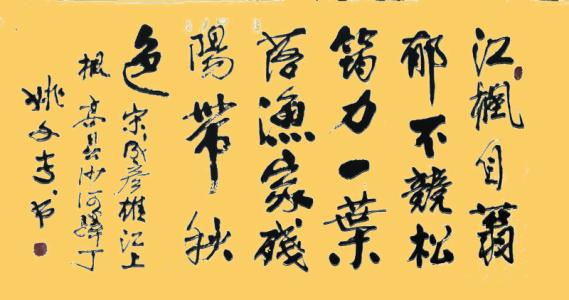 江楓自蓊
郁不競松
筠力一葉
落漁家殘
陽帶秋
色 宋成彦雄江上
楓 高县沙河驛丁
姚文